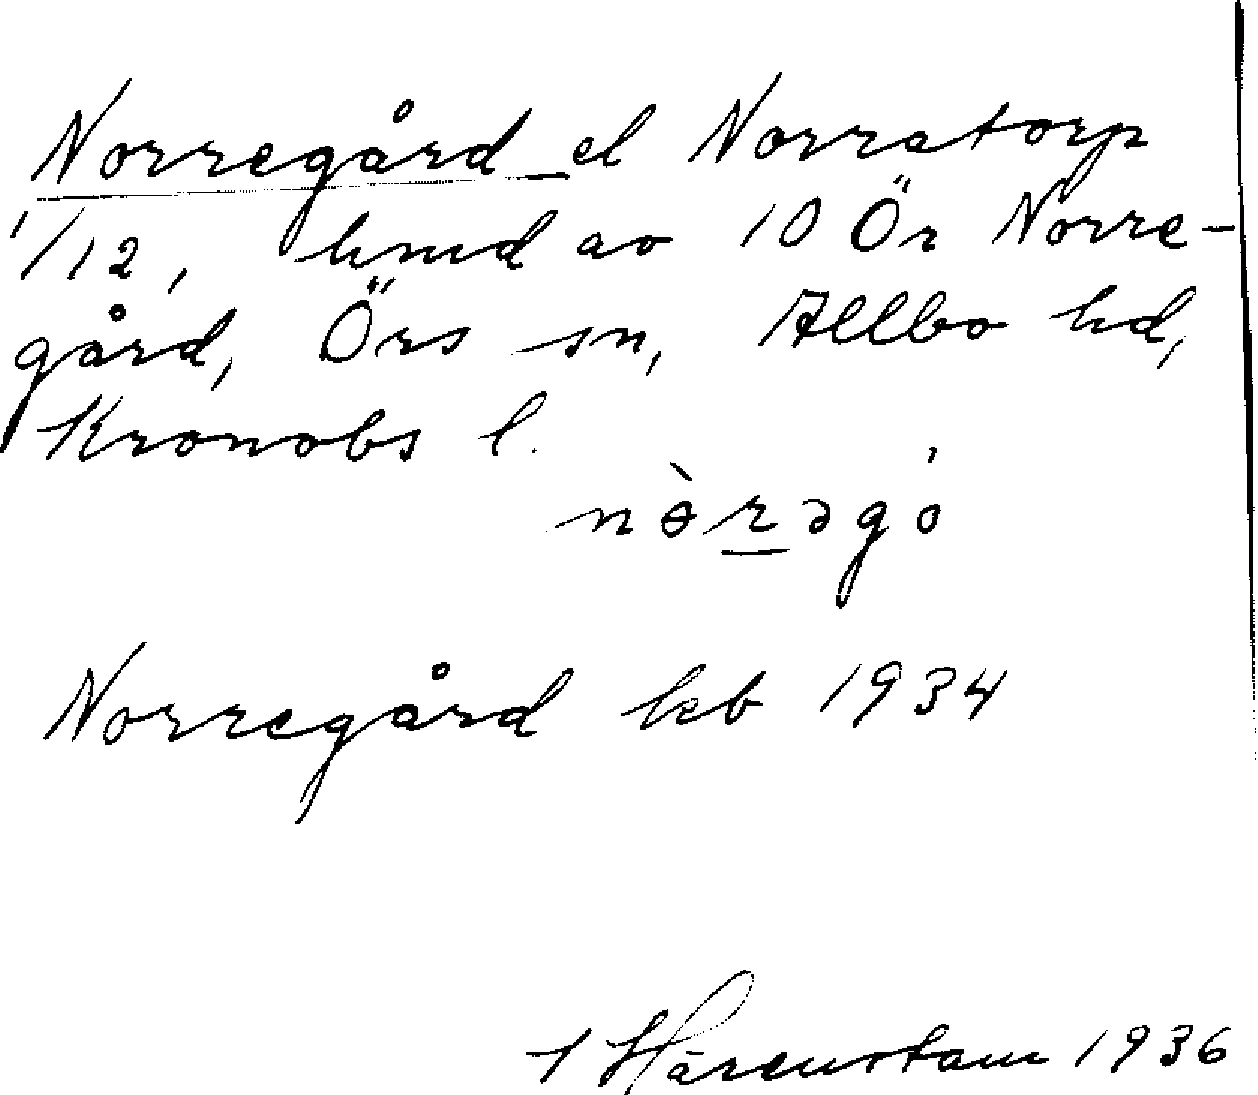 Norregård el Norratorp
1/12, hmd av 10 Ör Norre-
gård, Örs sn, Allbo hd,
Kronobs l.
nòrəgó
Norregård kb 1934
Härenstam 1936